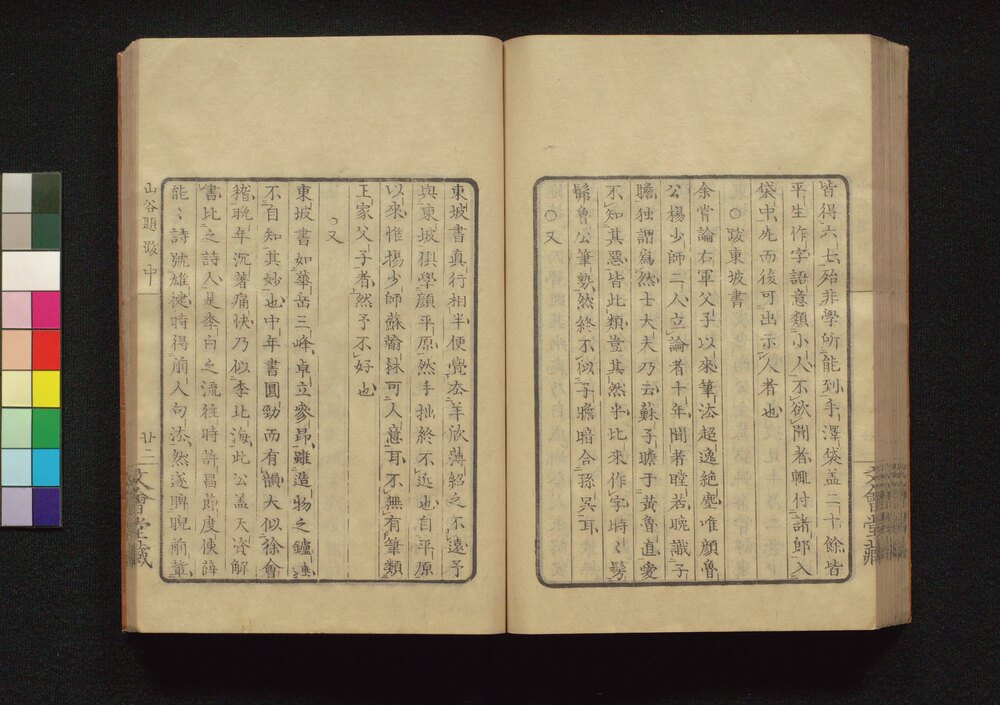 皆得六七殆非學所能到手澤袋盖二十餘皆
平生作字語意類小人不欲聞者輙付諸郎入
袋中先而後可出示人者也
○跋東坡書
余嘗論右軍父子以來筆法超逸絶塵唯顔魯
公楊少師二人立論者十年聞者瞠若晩識子
瞻独謂爲然士大夫乃云蘇子瞻于黄魯直愛
不知其惡皆此類豈其然乎比來作字時〻髣
髴魯公筆勢然終不似子瞻暗合孫吳耳
○又
東坡書真行相半便覺去羊欣薄紹之不遠予
與東坡俱學顔平原然手拙終不近也自平原
以來惟楊少師蘇翰林可人意耳不無有筆類
王家父子者然予不好也
○又
東坡書如華岳三峰卓立參昴雖造物之鑪錘
不自知其妙也中年書圓勁而有韻大似徐會
稽晩年沉著痛快乃似李北海此公盖天資解
書比之詩人是李白之流往時許昌節度使薛
能〻詩號雄健時得前人句法然遂睥睨前輩
山谷題跋中
廿二
文會堂藏
文會堂藏